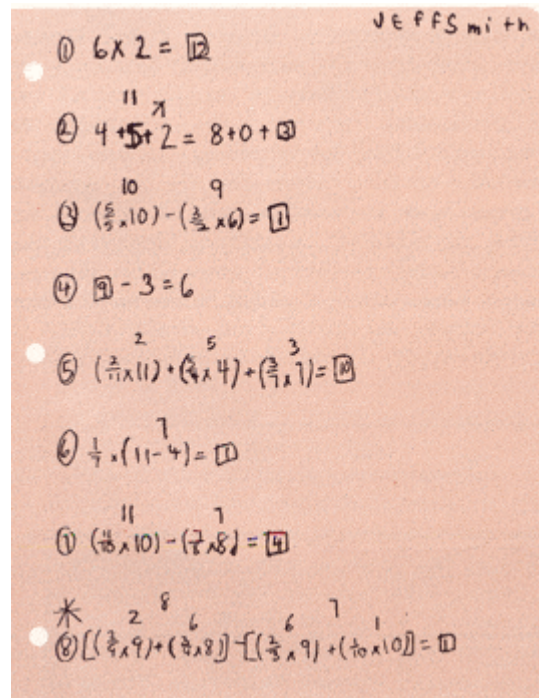 Jeff Smith
① 6 x 2 = 12
11
② 4 + 5 + 2 = 8 + 0 + 3
10 9
③ (5/5 x 10) - (3/2 x 6) = 1
④ 9 - 3 = 6
2 5 3
⑤ (2/11 x 11) + (5/4 x 4) + (3/7 x 7) = 10
7
⑥ 1/7 x (11 - 4) = 1
11 7
⑦ (11/10 x 10) - (7/8 x 8) = 4
*
2 8 6 6 7 1
⑧ [(2/9 x 9) + (3/4 x 8)] - [(2/3 x 9) + (1/10 x 10)] = 1